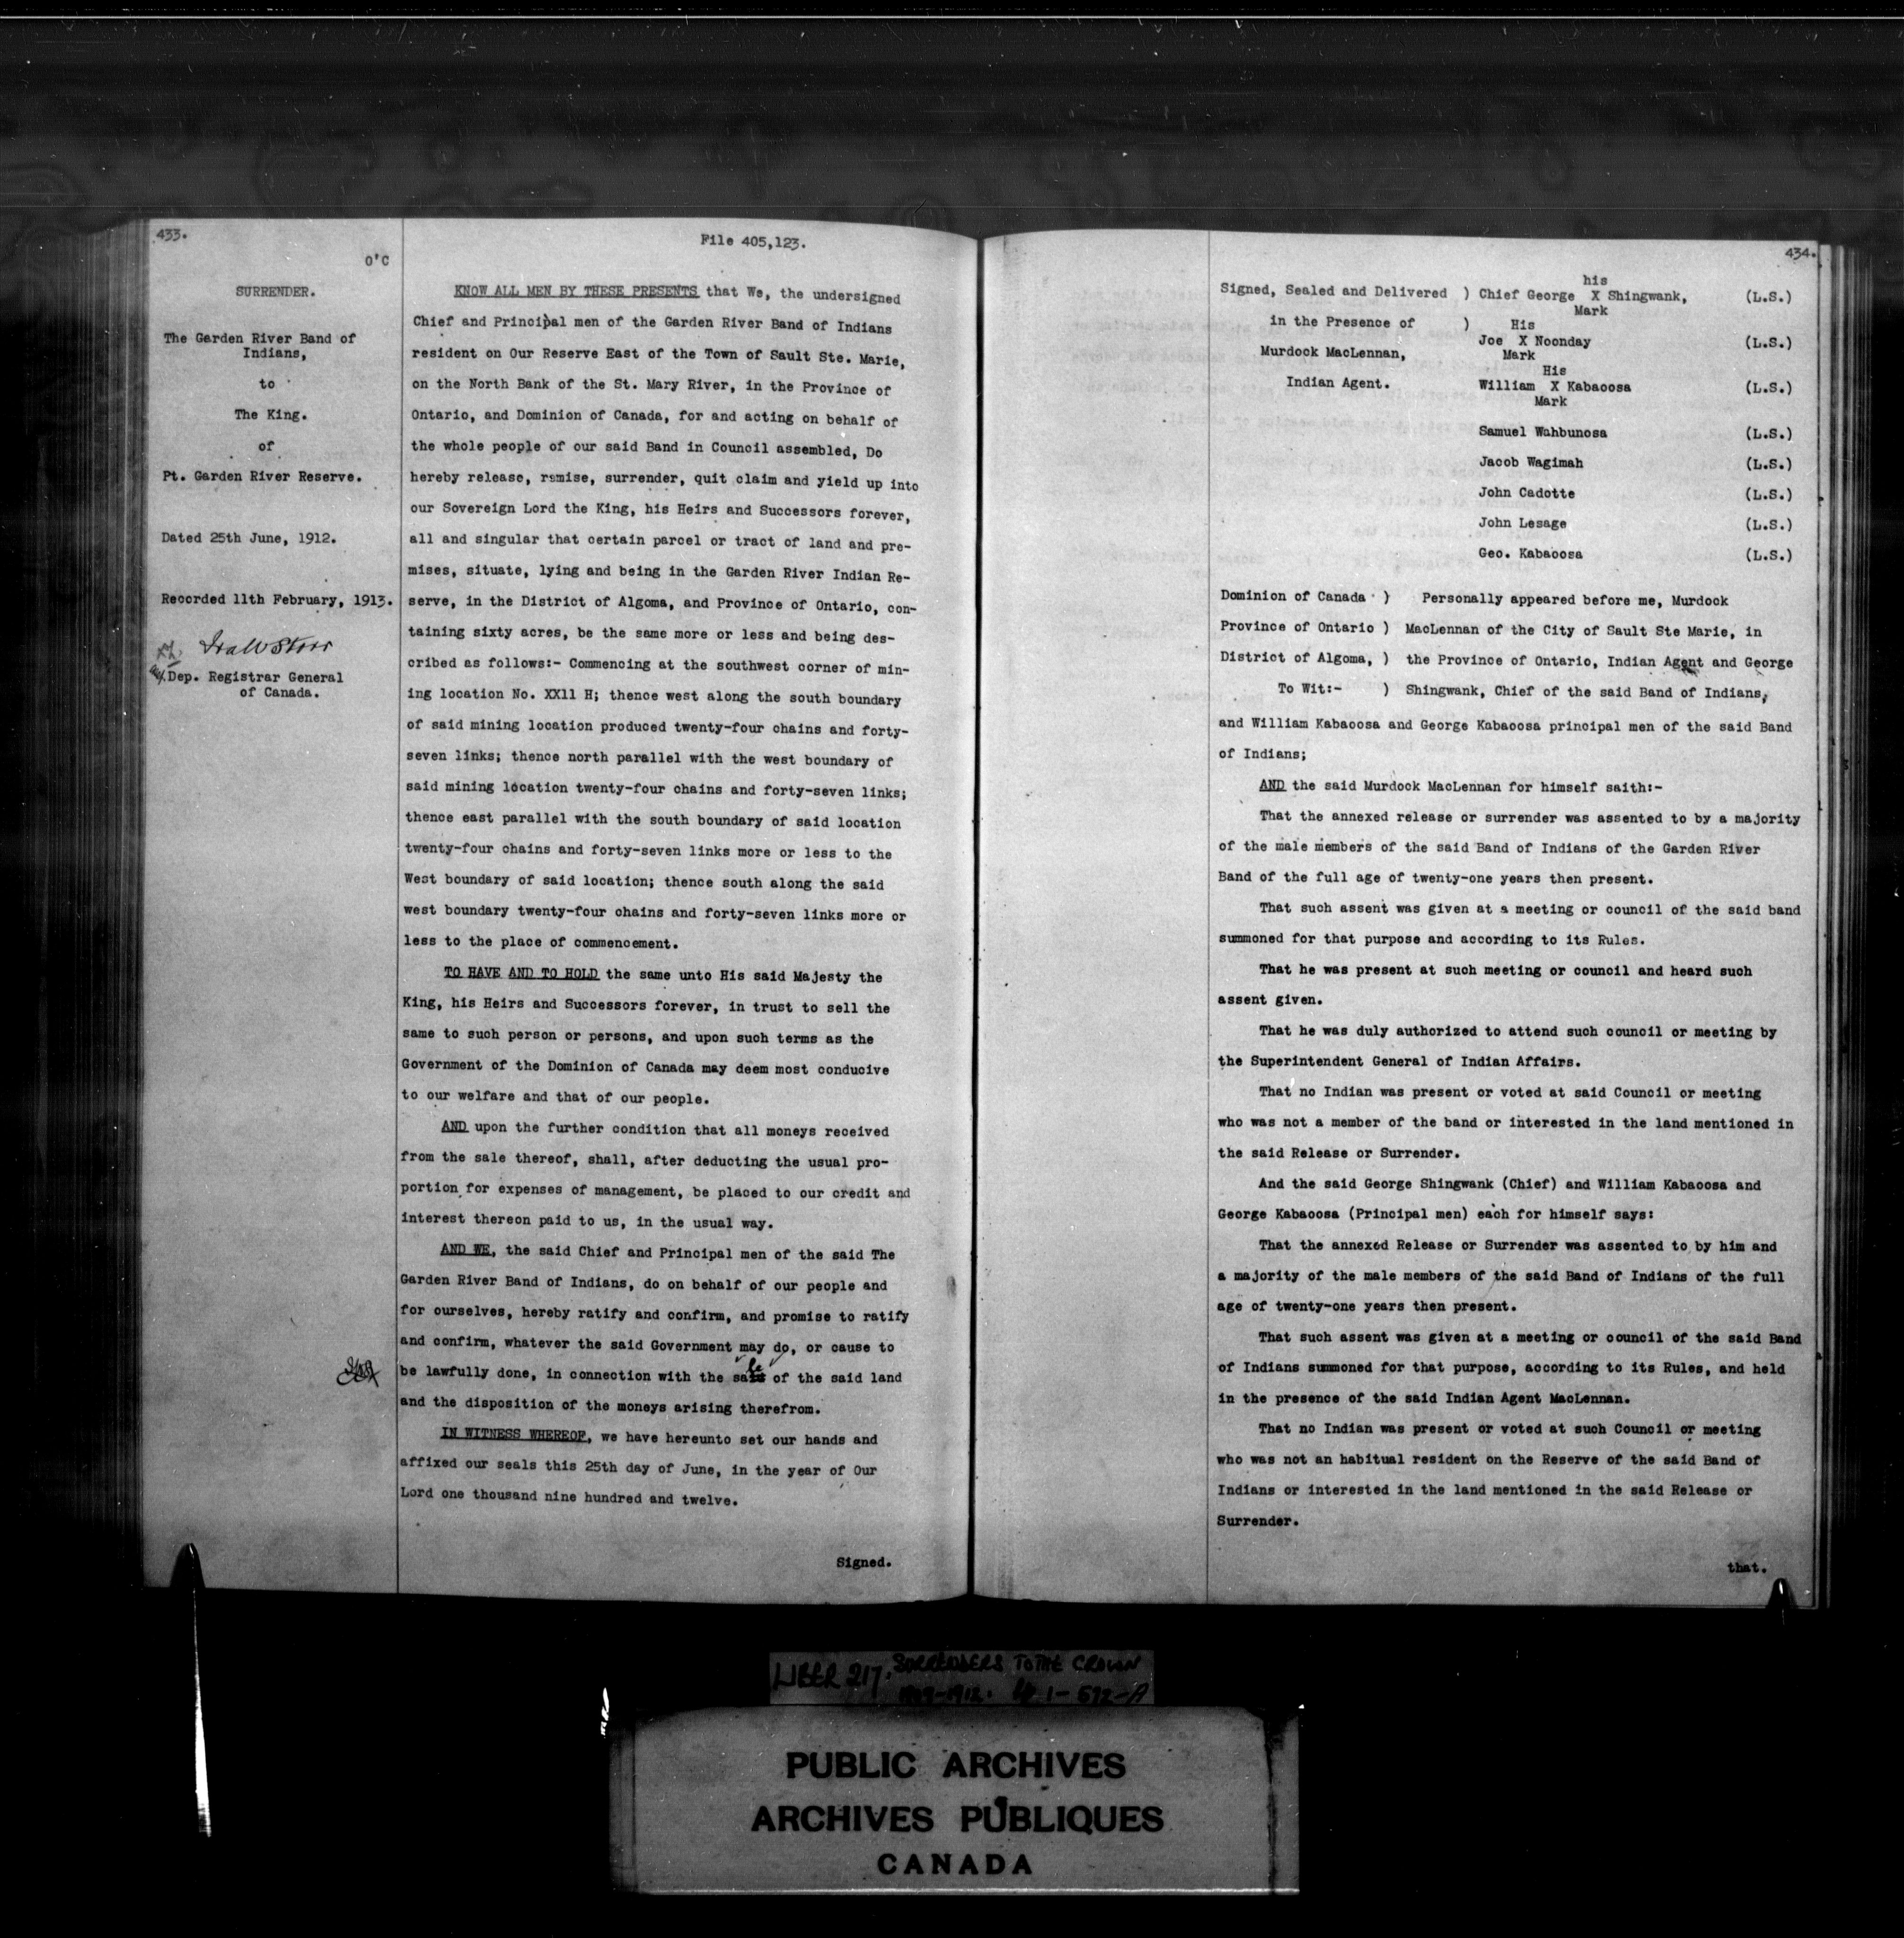 433.
O'C
SURRENDER.
The Garden River Band of
Indians,
to
The King.
of
Pt. Garden River Reserve.
Dated 25th June, 1912.
Recorded 11th February, 1913.
Dep. Registrar General
of Canada.
File 405,123.
KNOW ALL MEN BY THESE PRESENTS that We, the undersigned
Chief and Principal men of the Garden River Band of Indians
resident on Our Reserve East of the Town of Sault Ste. Marie,
on the North Bank of the St. Mary River, in the Province of
Ontario, and Dominion of Canada, for and acting on behalf of
the whole people of our said Band in Council assembled, Do
hereby release, remise, surrender, quit claim and yield up into
our Sovereign Lord the King, his Heirs and Successors forever,
all and singular that certain parcel or tract of land and pre-
mises, situate, lying and being in the Garden River Indian Re-
serve, in the District of Algoma, and Province of Ontario, con-
taining sixty acres, be the same more or less and being des-
cribed as follows:- Commencing at the southwest corner of min-
ing location No. XX11 H; thence west along the south boundary
of said mining location produced twenty-four chains and forty-
seven links; thence north parallel with the west boundary of
said mining location twenty-four chains and forty-seven links;
thence east parallel with the south boundary of said location
twenty-four chains and forty-seven links more or less to the
West boundary of said location; thence south along the said
west boundary twenty-four chains and forty-seven links more or
less to the place of commencement.
TO HAVE AND TO HOLD the same unto His said Majesty the
King, his Heirs and Successors forever, in trust to sell the
same to such person or persons, and upon such terms as the
Government of the Dominion of Canada may deem most conducive
to our welfare and that of our people.
AND upon the further condition that all moneys received
from the sale thereof, shall, after deducting the usual pro-
portion for expenses of management, be placed to our credit and
interest thereon paid to us, in the usual way.
AND WE, the said Chief and Principal men of the said The
Garden River Band of Indians, do on behalf of our people and
for ourselves, hereby ratify and confirm, and promise to ratify
and confirm, whatever the said Government may do, or cause to
be lawfully done, in connection with the sale of the said land
and the disposition of the moneys arising therefrom.
IN WITNESS WHEREOF, we have hereunto set our hands and
affixed our seals this 25th day of June, in the year of Our
Lord one thousand nine hundred and twelve.
Signed.
434.
his
Signed, Sealed and Delivered ) Chief George X Shingwank, (L.S.)
Mark
in the Presence of ) His
Joe X Noonday (L.S.)
Murdock MacLennan, Mark
His
Indian Agent. William X Kabaoosa (L.S.)
Mark
Samuel Wahbunosa (L.S.)
Jacob Wagimah (L.S.)
John Cadotte (L.S.)
John Lesage (L.S.)
Geo. Kabaoosa (L.S.)
Dominion of Canada ) Personally appeared before me, Murdock
Province of Ontario ) MacLennan of the City of Sault Ste Marie, in
District of Algoma, ) the Province of Ontario, Indian Agent and George
To Wit:- ) Shingwank, Chief of the said Band of Indians,
and William Kabaoosa and George Kabaoosa principal men of the said Band
of Indians;
AND the said Murdock MacLennan for himself saith:-
That the annexed release or surrender was assented to by a majority
of the male members of the said Band of Indians of the Garden River
Band of the full age of twenty-one years then present.
That such assent was given at a meeting or council of the said band
summoned for that purpose and according to its Rules.
That he was present at such meeting or council and heard such
assent given.
That he was duly authorized to attend such council or meeting by
the Superintendent General of Indian Affairs.
That no Indian was present or voted at said Council or meeting
who was not a member of the band or interested in the land mentioned in
the said Release or Surrender.
And the said George Shingwank (Chief) and William Kabaoosa and
George Kabaoosa (Principal men) each for himself says:
That the annexed Release or Surrender was assented to by him and
a majority of the male members of the said Band of Indians of the full
age of twenty-one years then present.
That such assent was given at a meeting or council of the said Band
of Indians summoned for that purpose, according to its Rules, and held
in the presence of the said Indian Agent MacLennan.
That no Indian was present or voted at such Council or meeting
who was not an habitual resident on the Reserve of the said Band of
Indians or interested in the land mentioned in the said Release or
Surrender.
that.
LIBER 217. SURRENDERS TO THE CROWN
PUBLIC ARCHIVES
ARCHIVES PUBLIQUES
CANADA